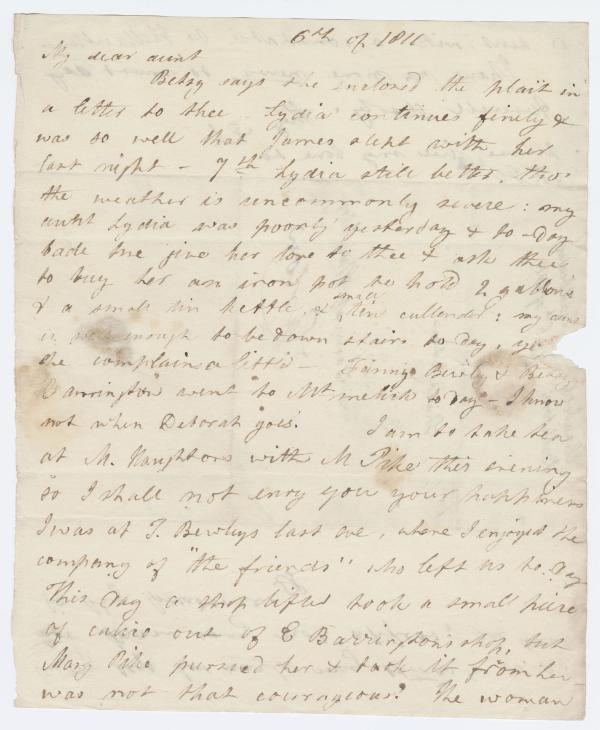 6th of 1811
My dear aunt
Betsy says she inclosed the plait in
a letter to thee. Lydia continues finely &
was so well that James slept with her
last night - 7th Lydia still better, tho'
the weather is uncommonly severe: my
aunt Lydia was poorly yesterday & to-day
bade me give her love to thee & ask thee
to buy her an iron pot to hold 2 gallons
& a small tin kettle, & small tin cullender: my aunt
is well enough to be down stairs to day, yet
she complains a little - Fanny Bewly & Betsy
Barrington went to Mt. melick to day - I know
not when Deborah goes. I am to take tea
at M. Naughtons with M Pike this evening
so I shall not envy you your happiness
I was at T. Bewleys last eve, where I enjoyed the
company of "the friends" who left us to day
This day a shop lifter took a small piece
of calico out of E Barringtons shop, but
Mary Pike pursued her & took it from her -
was not that courageous? The woman